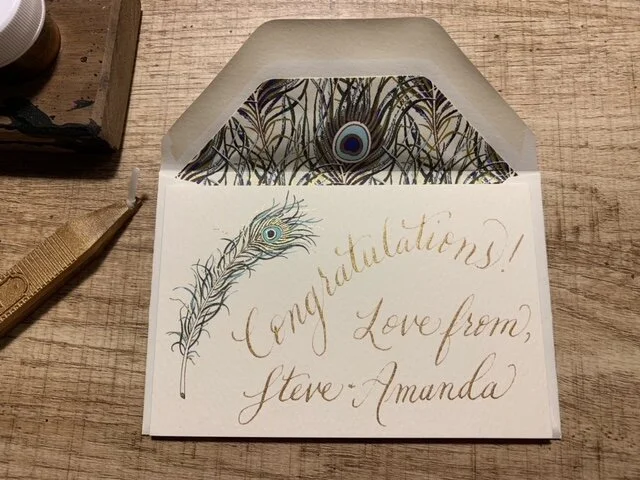 Congratulations!
Love from,
Steve - Amanda